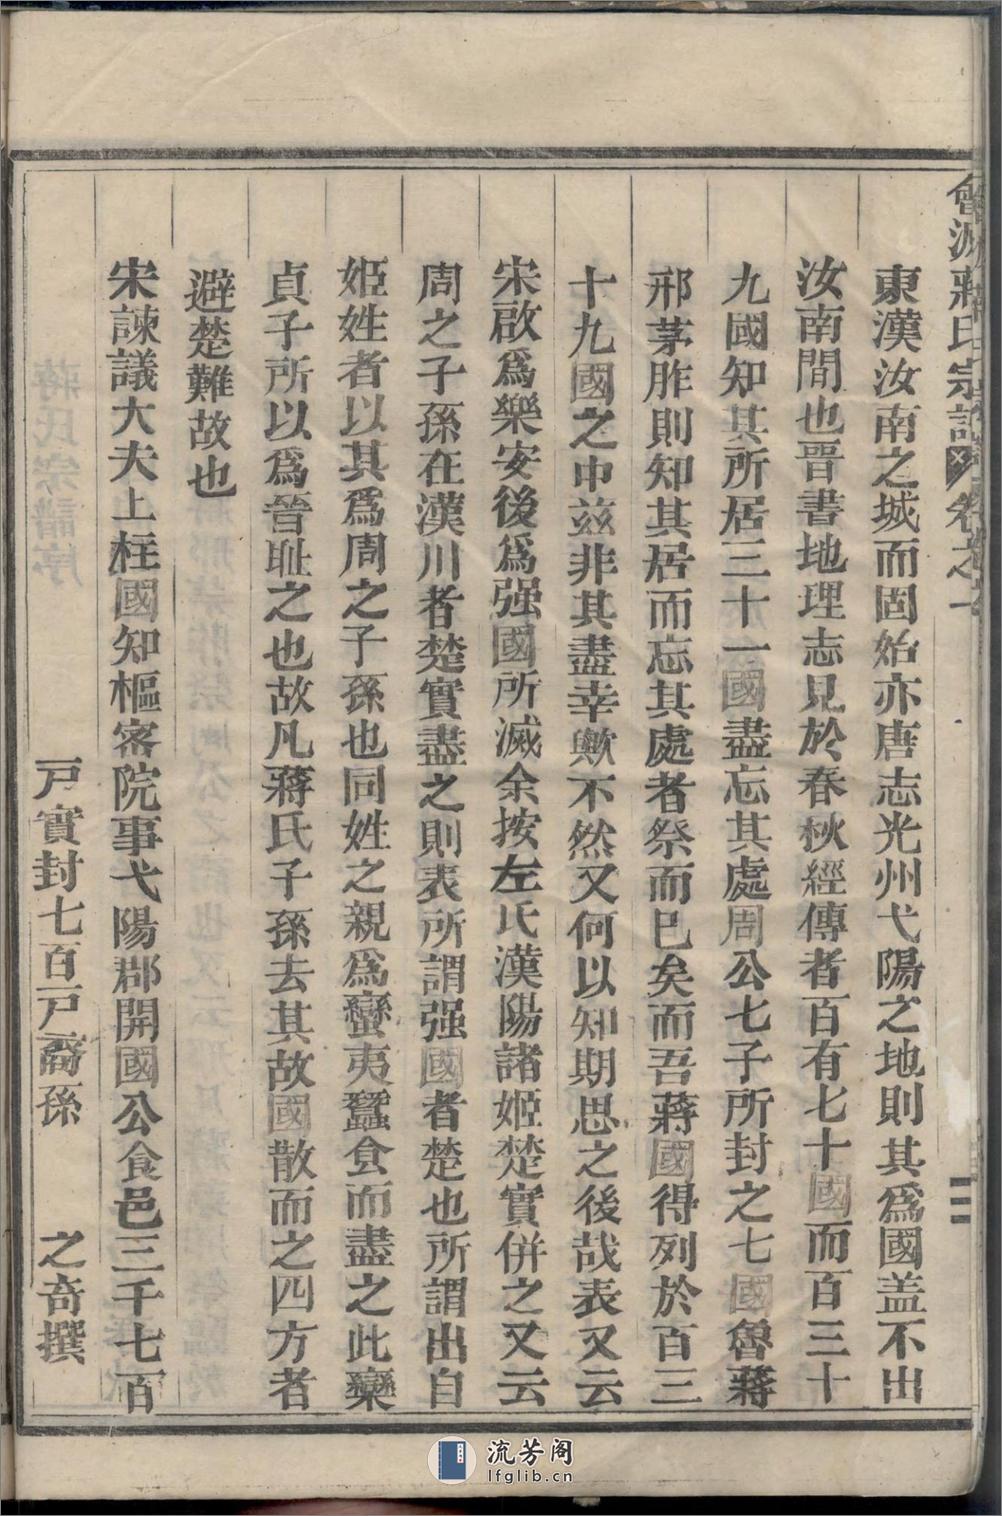 會源蔣氏宗譜 卷之一 二
東漢汝南之城而固始亦唐志光州弋陽之地則其爲國盖不出
汝南間也晋書地理志見於春秋經傳者百有七十國而百三十
九國知其所居三十一國盡忘其處周公七子所封之七國魯蔣
邢茅胙則知其居而忘其處者祭而已矣而吾蔣國得列於百三
十九國之中兹非其盡幸歟不然又何以知期思之後哉表又云
宋啟爲樂安後爲强國所滅余按左氏漢陽諸姬楚實併之又云
周之子孫在漢川者楚實盡之則表所謂强國者楚也所謂出自
姬姓者以其爲周之子孫也同姓之親爲蠻夷蠶食而盡之此欒
貞子所以爲晉耻之也故凡蔣氏子孫去其故國散而之四方者
避楚難故也
宋諫議大夫上柱國知樞密院事弋陽郡開國公食邑三千七百
戸實封七百戸裔孫 之奇撰
流芳阁
lfglib.cn